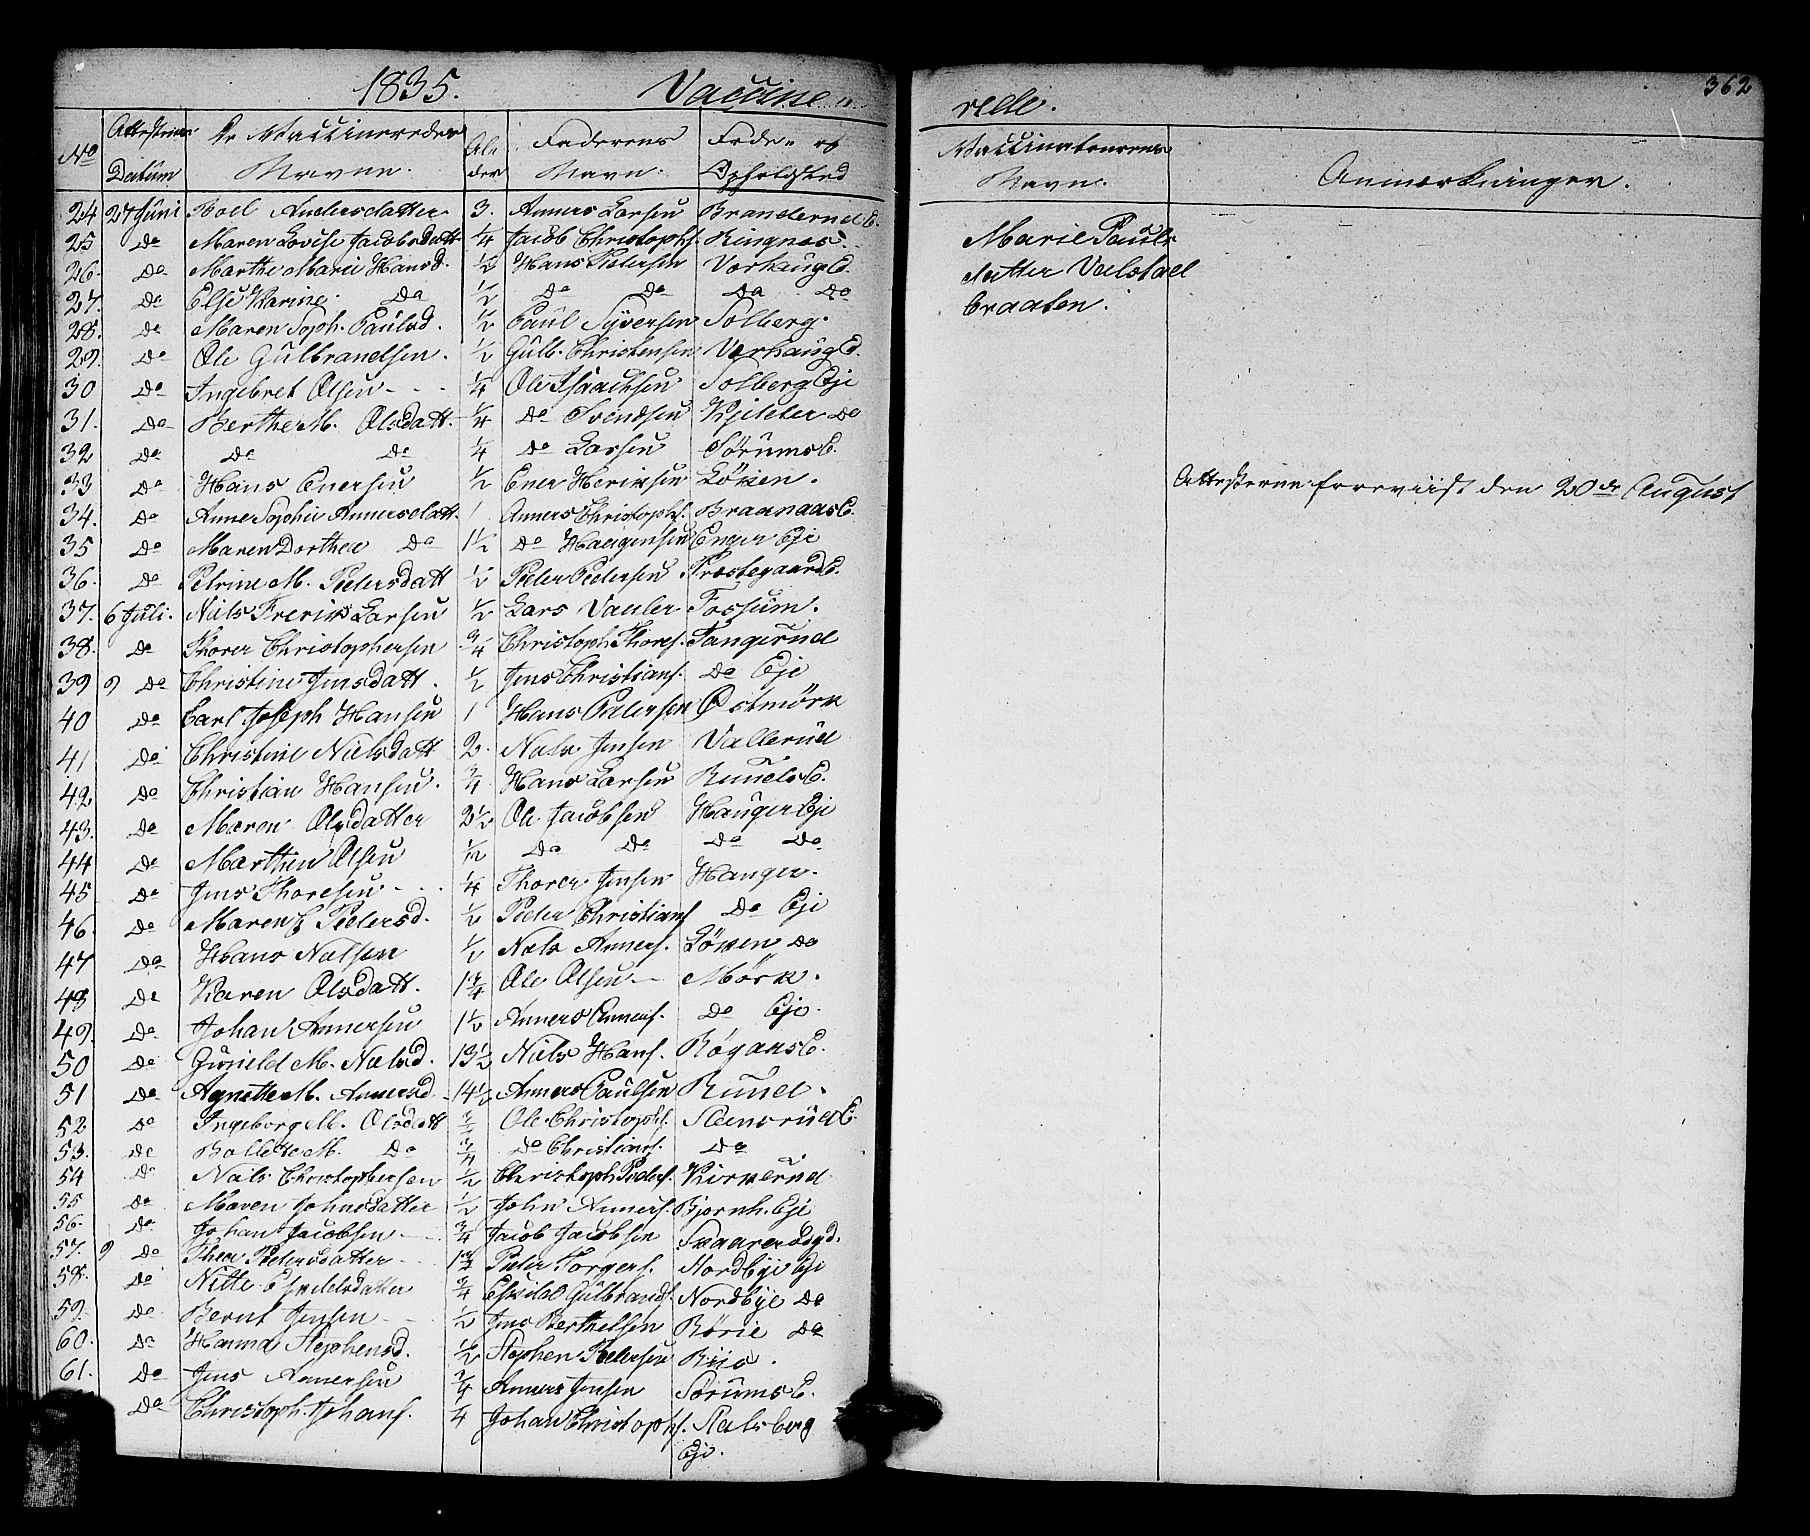 1835. Vaccine-
No Attesternes Datum De Vaccineredes Navne. Alder Faderens Navn. Føde- og Opholdsted
24 27 Juni Boel Andersdatter 3. Anners Larsen Branderud E.
25 Do Maren Lovise Jacobsdatt 1/4 Jacob Christophs. Ringnæs.
26. Do Marthe Marie Hansd. 1/2 Hans Pedersen Vorhaug E.
27. Do Else Karine. Do 1/2 Do Do Do Do
28. Do Maren Soph. Paulsd. 1/2 Paul Syversen Solberg.
29. Do Ole Gulbrandsen. 1/2 Gulb. Christensen Vorhaug E.
30 Do Ingebret Olsen 1/4 Ole Isaachsen Solberg Eje
31. Do Berthe M. Olsdatt. 1/4 Do Svendsen Do
32 Do Do Do 1/4 Do Larsen Sörums E.
33 Do Hans Enersen 1/2 Ener Hen Löken.
34. Do Anne Sophie Annersdatt. 1 Anners Christophs. Braanaas E.
35 Do Maren Dorthea Do 1 1/2 Do Haagensen Enger Eje
36. Do Petrine M. Pedersdatt 1/2 Peder Pedersen Præstegaard E.
37. 6 Juli. Niels Frerik Larsen 1/2 Lars Vauler Fossum.
38. Do Thorer Christophersen 3/4 Christoph Thores. Tangerud
39 9 Do Christine Jensdatt. 1/2 Jens Christians. Do Eje
40 Do Carl Joseph Hansen 1 Hans Pedersen Östmörk
41 Do Christine Nielsdatt 2. Niels Jensen Vallerud
42 Do Christian Hansen. 3/4 Hans Larsen Ruuds E.
43. Do Maren Olsdatter 2 1/2 Ole Jacobsen Hauger Eje
44 Do Marthin Olsen 1/12 Do Do Do Do
45 Do Jens Thoresen 1/4 Thorer Jensen Hauger.
46. Do Maren Pedersd. 1/2 Peder Christians Do Eje
47 Do Hans Nielsen 1/2 Niels Anners. Löken Do
48 Do Karen Olsdatt. 1 3/4 Ole Olsen Mörk.
49. Do Johan Annersen 1 1/2 Anners Anners. Do Eje.
50 Do Gunild M. Nielsd. 13 1/2 Niels Hans. Rögaas E.
51 Do Agnethe M. Annersd. 14 1/2 Anners Paulsen Ruud.
52 Do Ingeborg M. Olsdatt Ole Christophs. Steensrud E.
53. Do Bollette M. Do 3/4 Do Christians. Do
54 Do Niels Christophersen 1/2 Christoph Peders. Kirkerud
55 Do Maren Johnsdatter 1/2 John Anners. Bjørnh. Eje
56. Do Johan Jacobsen 3/4 Jacob Jacobsen
57. 9 Do Thea Pedersdatter Peder Torgers. Nordbye Eje
58. Do Nette Eskildsdatter 3/4 Eskild Gulbrands. Nordbye Do
59. Do Bernt Jensen 1/2 Jens Berthelsen Börie Do
60. Do Hanna Stephensd. 1/2 Stephen Pedersen Riis.
61. Do Jens Annersen 3/4 Anners Jensen Sörums E.
Do Christoph. Johans. 1/4 Johan Christophs. Stalsberg
Eje.
362
relle.
Vaccinateurens Navn. Anmærkninger.
Marie Pauls
datter Vælstad
braaten.
Attesterne foreviist den 20de August